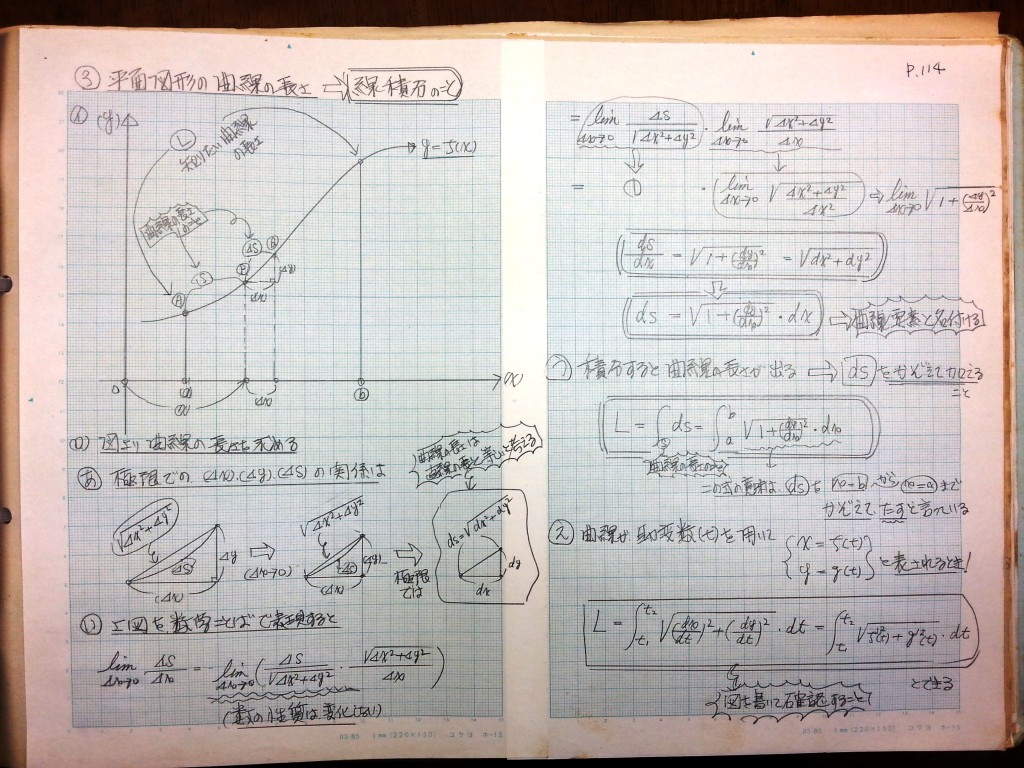 P.114
③ 平面図形の曲線の長さ ⇒ 線積分のこと
(y)
L
知りたい曲線
の長さ
y = f(x)
曲線の長さ
のこと
ΔS
Q
ΔS
P
(Δy)
(Δx)
A
0
(a)
(x)
(Δx)
ⓑ
x
(ロ) 図より曲線の長さを求める
あ 極限での (Δx),(Δy),(ΔS) の関係は
曲線の長さは
直線の長さと等しいと考える
√Δx²+Δy²
ΔS
Δy
(Δx)
⇒
(Δx→0)
√Δx²+Δy²
ΔS
(Δy)
(Δx)
⇒
極限
では
ds=√dx²+dy²
dy
dx
い 上図を数学ことばで表現すると
lim Δx→0 ΔS/Δx = lim Δx→0 (ΔS/√Δx²+Δy² · √Δx²+Δy²/Δx)
(式の性質は変化しない)
= lim Δx→0 ΔS/√Δx²+Δy² · lim Δx→0 √Δx²+Δy²/Δx
= ① · lim Δx→0 √Δx²+Δy²/Δx² ⇒ lim Δx→0 √1+(Δy/Δx)²
ds/dx = √1+(dy/dx)² = √dx²+dy²
ds = √1+(dy/dx)² · dx ⇒ 曲線要素と名付ける
う 積分すると曲線の長さが出る ⇒ ds をかぞえて加える
こと
L = ∫ ds = ∫a b √1+(dy/dx)² · dx
曲線の長さのこと
この式の意味は (ds) を x=b から x=a まで
かぞえて たすと言っている
え 曲線が助変数(t)を用いて
x = f(t)
y = g(t)
と表されるとき!
L = ∫t₁ t₂ √(dx/dt)²+(dy/dt)² · dt = ∫t₁ t₂ √f'²(t)+g'²(t) · dt
とできる
図を書いて確認すること!
1mm(220×160) コクヨ ホ-15
1mm(220×160) コクヨ ホ-15